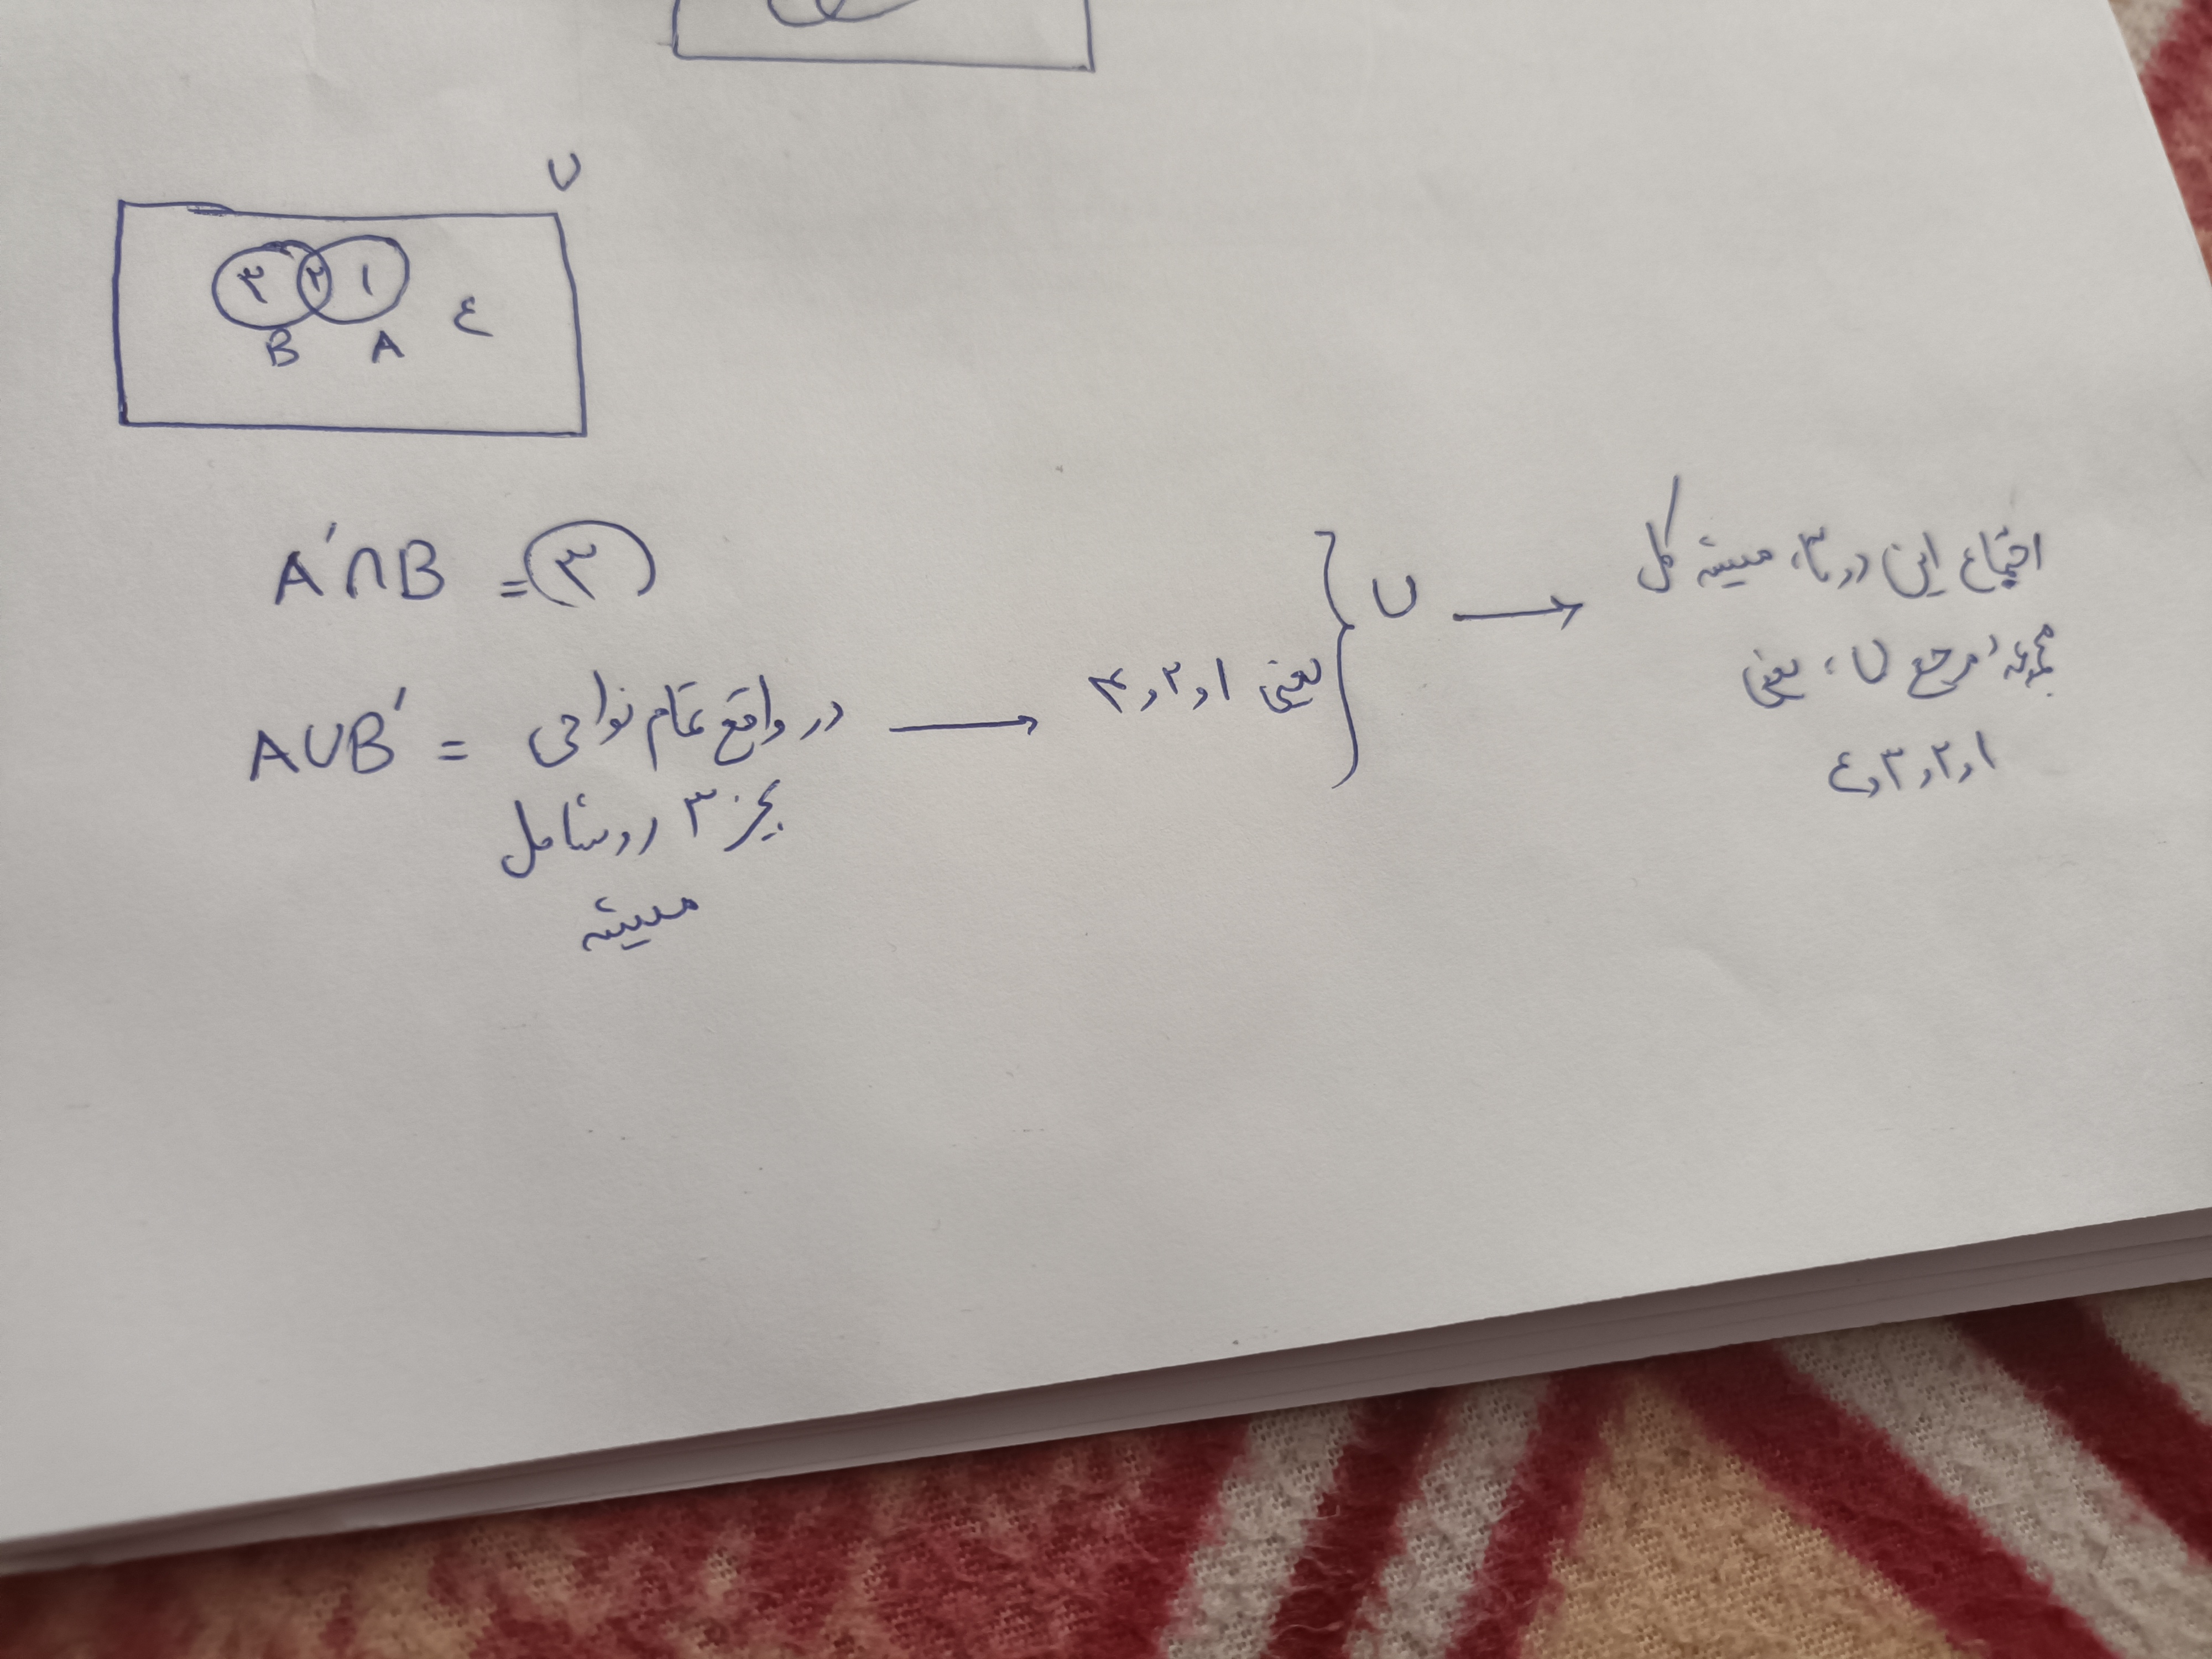 U
۳ ۲ ۱
۴
B A
A'∩B = ۳
A∪B' = در واقع تمام نواحی
بجز ۳ رو شامل
میشه
یعنی ۱ و ۲ و ۴
U
اجتماع این دو تا، میشه کل
مجموعه مرجع U، یعنی
۱ و ۲ و ۳ و ۴